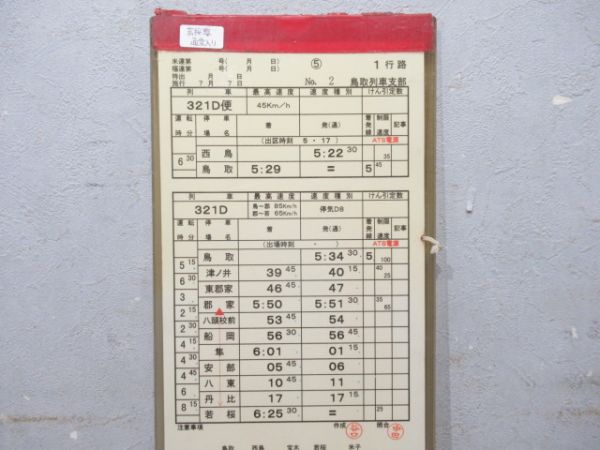 若桜駅
通票入り
米達第 号( 月 日)
福達第 号( 月 日)
時出 月 日
施行 ? 月 ? 日
⑤
1行路
No. 2 鳥取列車支部
列車 最高速度 速度種別 けん引定数
321D便 45Km/h
運転時分 停車場名 着 発(通) 着発線 制限速度 記事
(出区時刻 5 ・ 17) ATS電源
西鳥 5:22 30
6 30
鳥取 5:29 = 5 45 35
列車 最高速度 速度種別 けん引定数
321D 鳥~郡 85Km/h 停気D8
郡~若 65Km/h
運転時分 停車場名 着 発(通) 着発線 制限速度 記事
(出場時刻 ・ ) ATS電源
鳥取 5:34 30 5 100
5 15
津ノ井 39 45 40 15 40 25
6 30
東郡家 46 45 47
3
郡家 5:50 5:51 30 35 65
2 15
八頭校前 53 45 54
2 30
船岡 56 30 56 45
4 30
隼 6:01 01 15
4 30
安部 05 45 06
4 45
八東 10 45 11
6
丹比 17 17 15
8 15
若桜 6:25 30 = 25
注意事項 作成 照合
鳥取 西鳥 宝木 若桜 米子